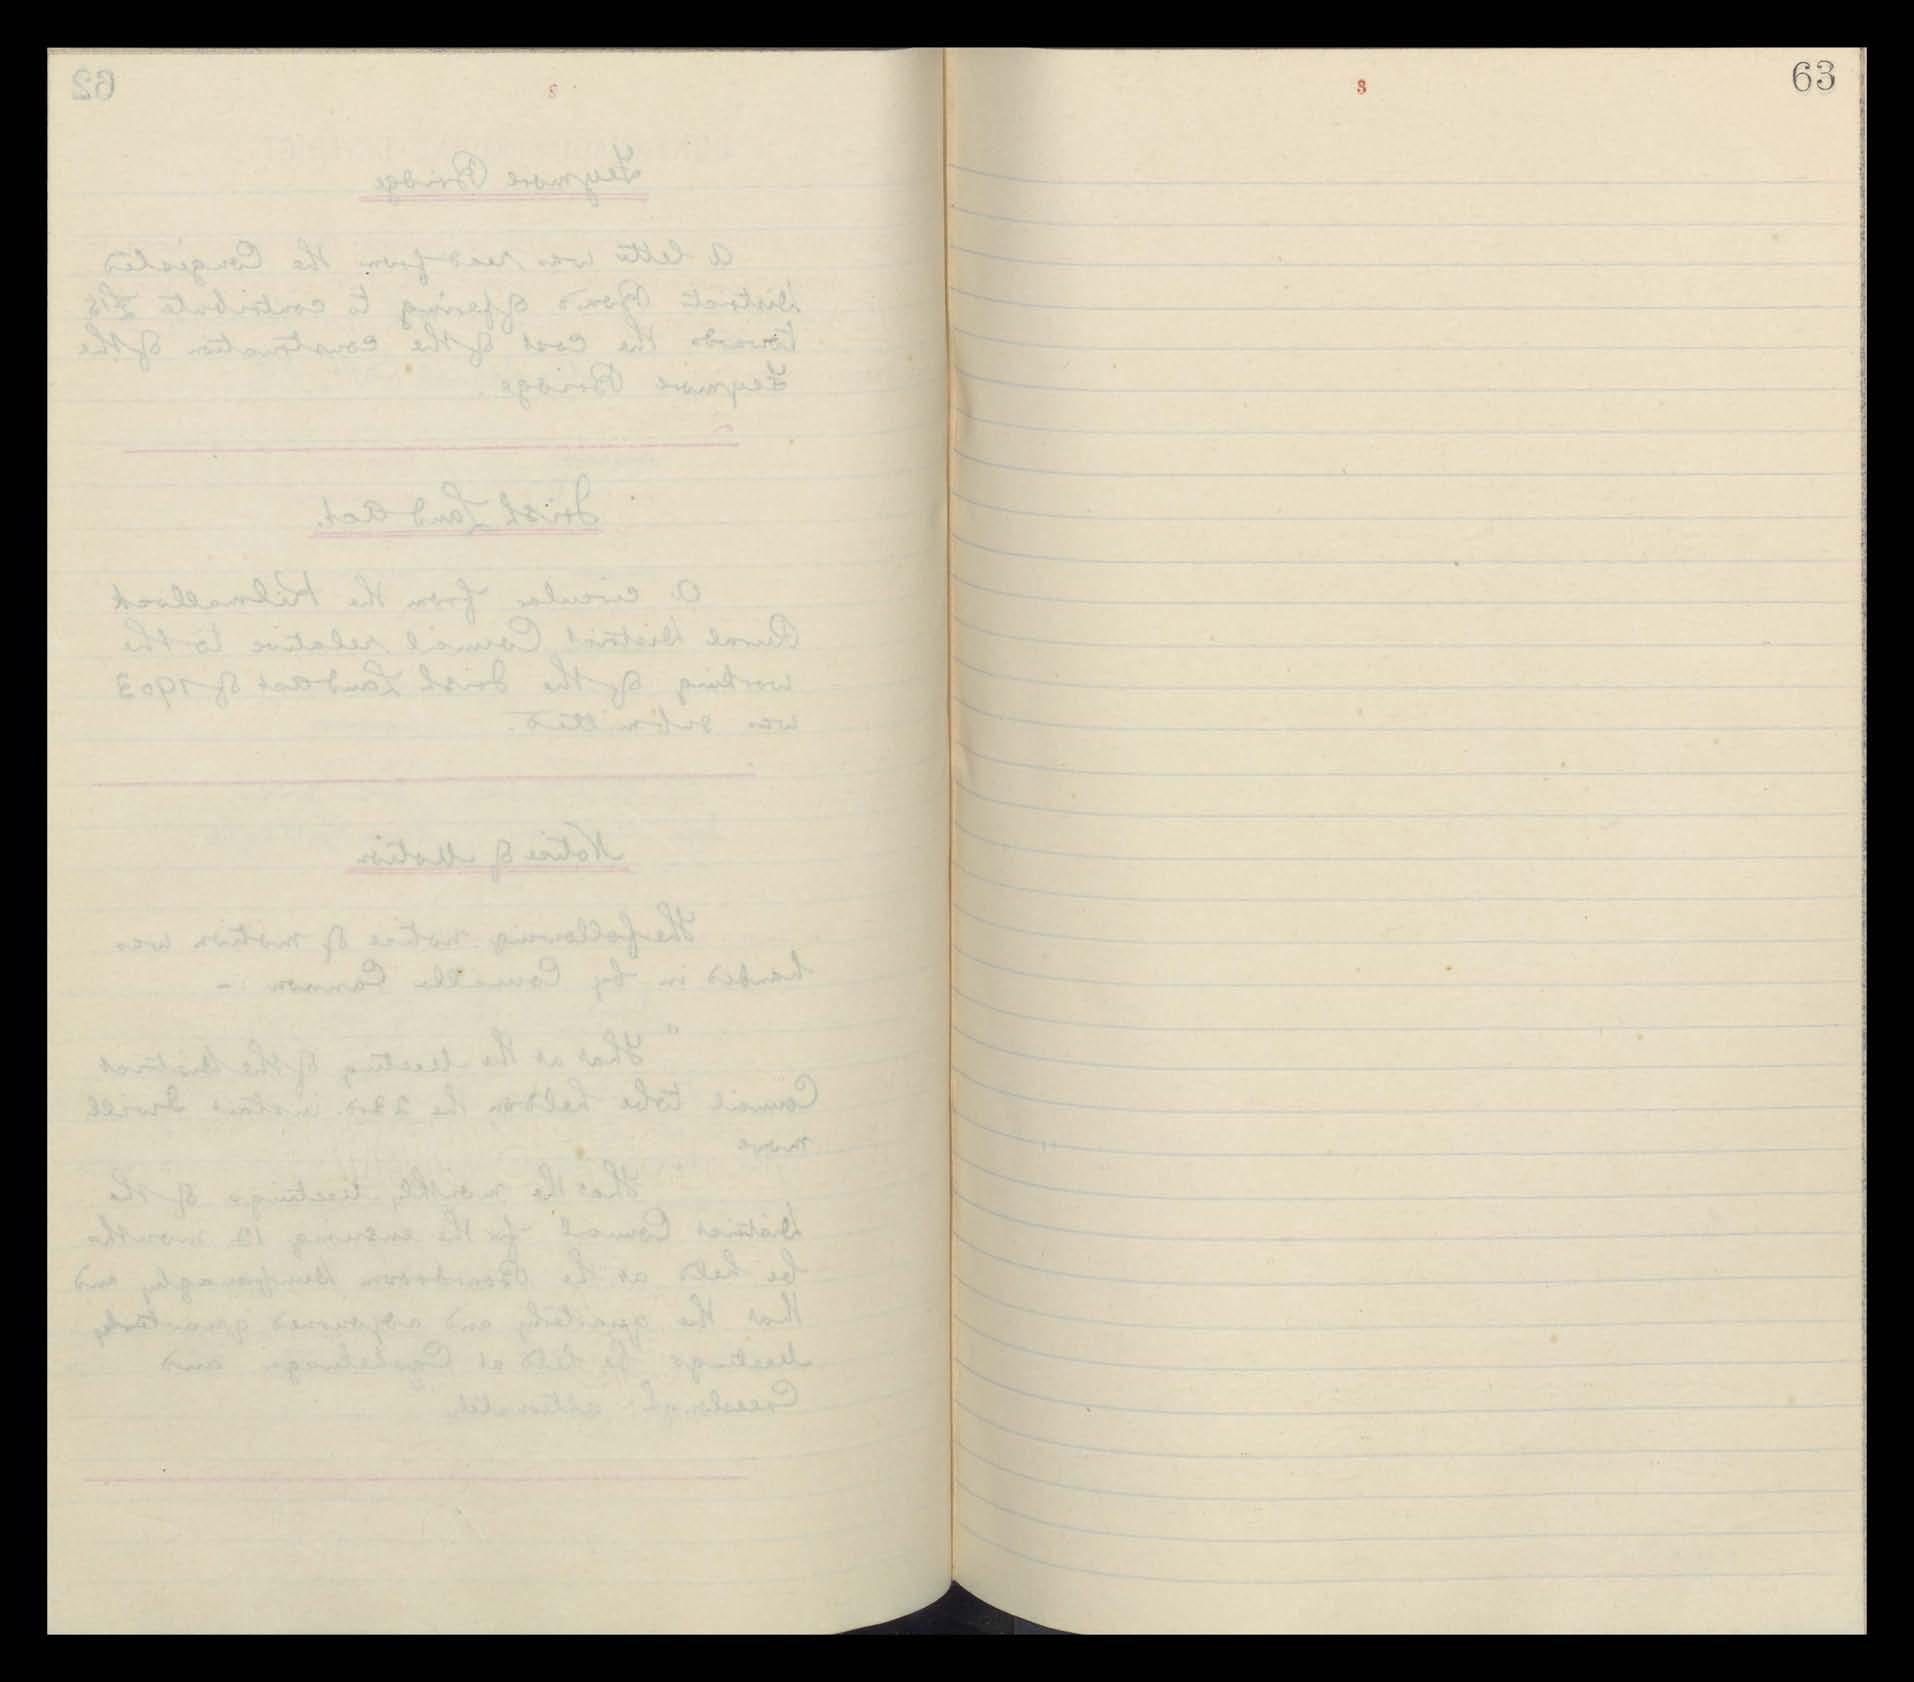 62
8
DUNFANAGHY RURAL DISTRICT.
Feymore Bridge
A letter was read from the Congested
Districts Board offering to contribute £15
towards the cost of the construction of the
Feymore Bridge.
Irish Land Act.
A circular from the Kilmallock
Rural District Council relative to the
working of the Irish Land Act of 1903
was submitted.
Notice of Motion
The following notice of motion was
handed in by Councillor Cannon :-
"That at the Meeting of the District
Council to be held on the 23rd instant I will
move
"That the monthly meetings of the
District Council for the ensuing 12 months
be held at the Boardroom Dunfanaghy, and
that the quarterly and adjourned quarterly
Meetings be held at and
Creeslough alternately
63
8